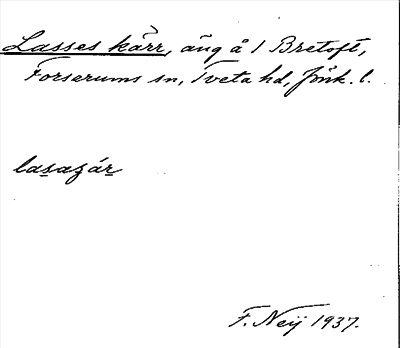 Lasses kärr, äng å 1 Bretoft,
Forserums sn, Tveta hd, Jönk. l.
lasaʒár
F. Neij 1937.